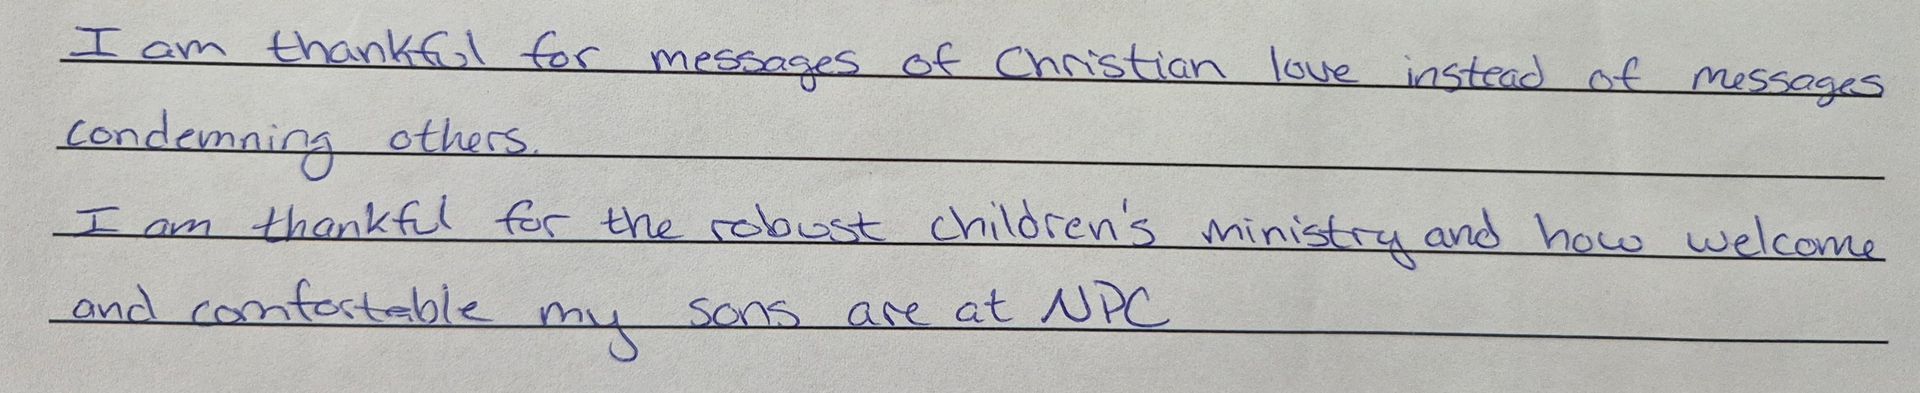 I am thankful for messages of Christian love instead of messages
condemning others.
I am thankful for the robust children's ministry and how welcome
and comfortable my sons are at NPC